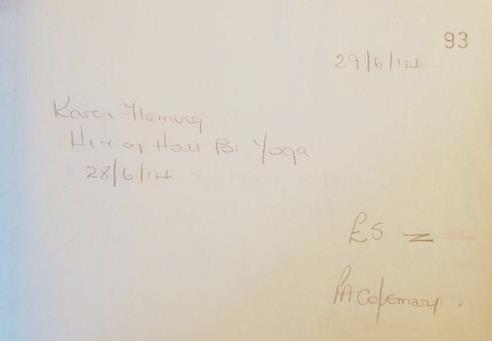 93
29/6/14
Karen Fleming
Hire of Hall for Yoga
28/6/14
£5 =